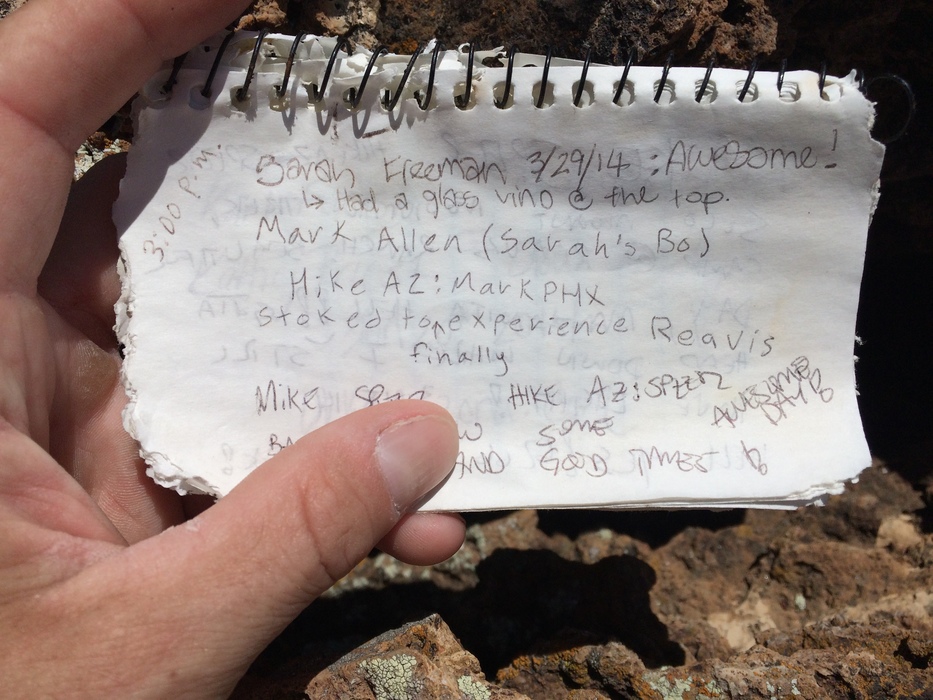 3:00 p.m.
Sarah Freeman 3/29/14 : Awesome!
↳ Had a glass vino @ the top.
Mark Allen (Sarah's Bo)
Hike AZ: MarkPHX
Stoked to ^ experience Reavis
finally
Mike HIKE AZ:
AWESOME
DAY
SOME
AND GOOD